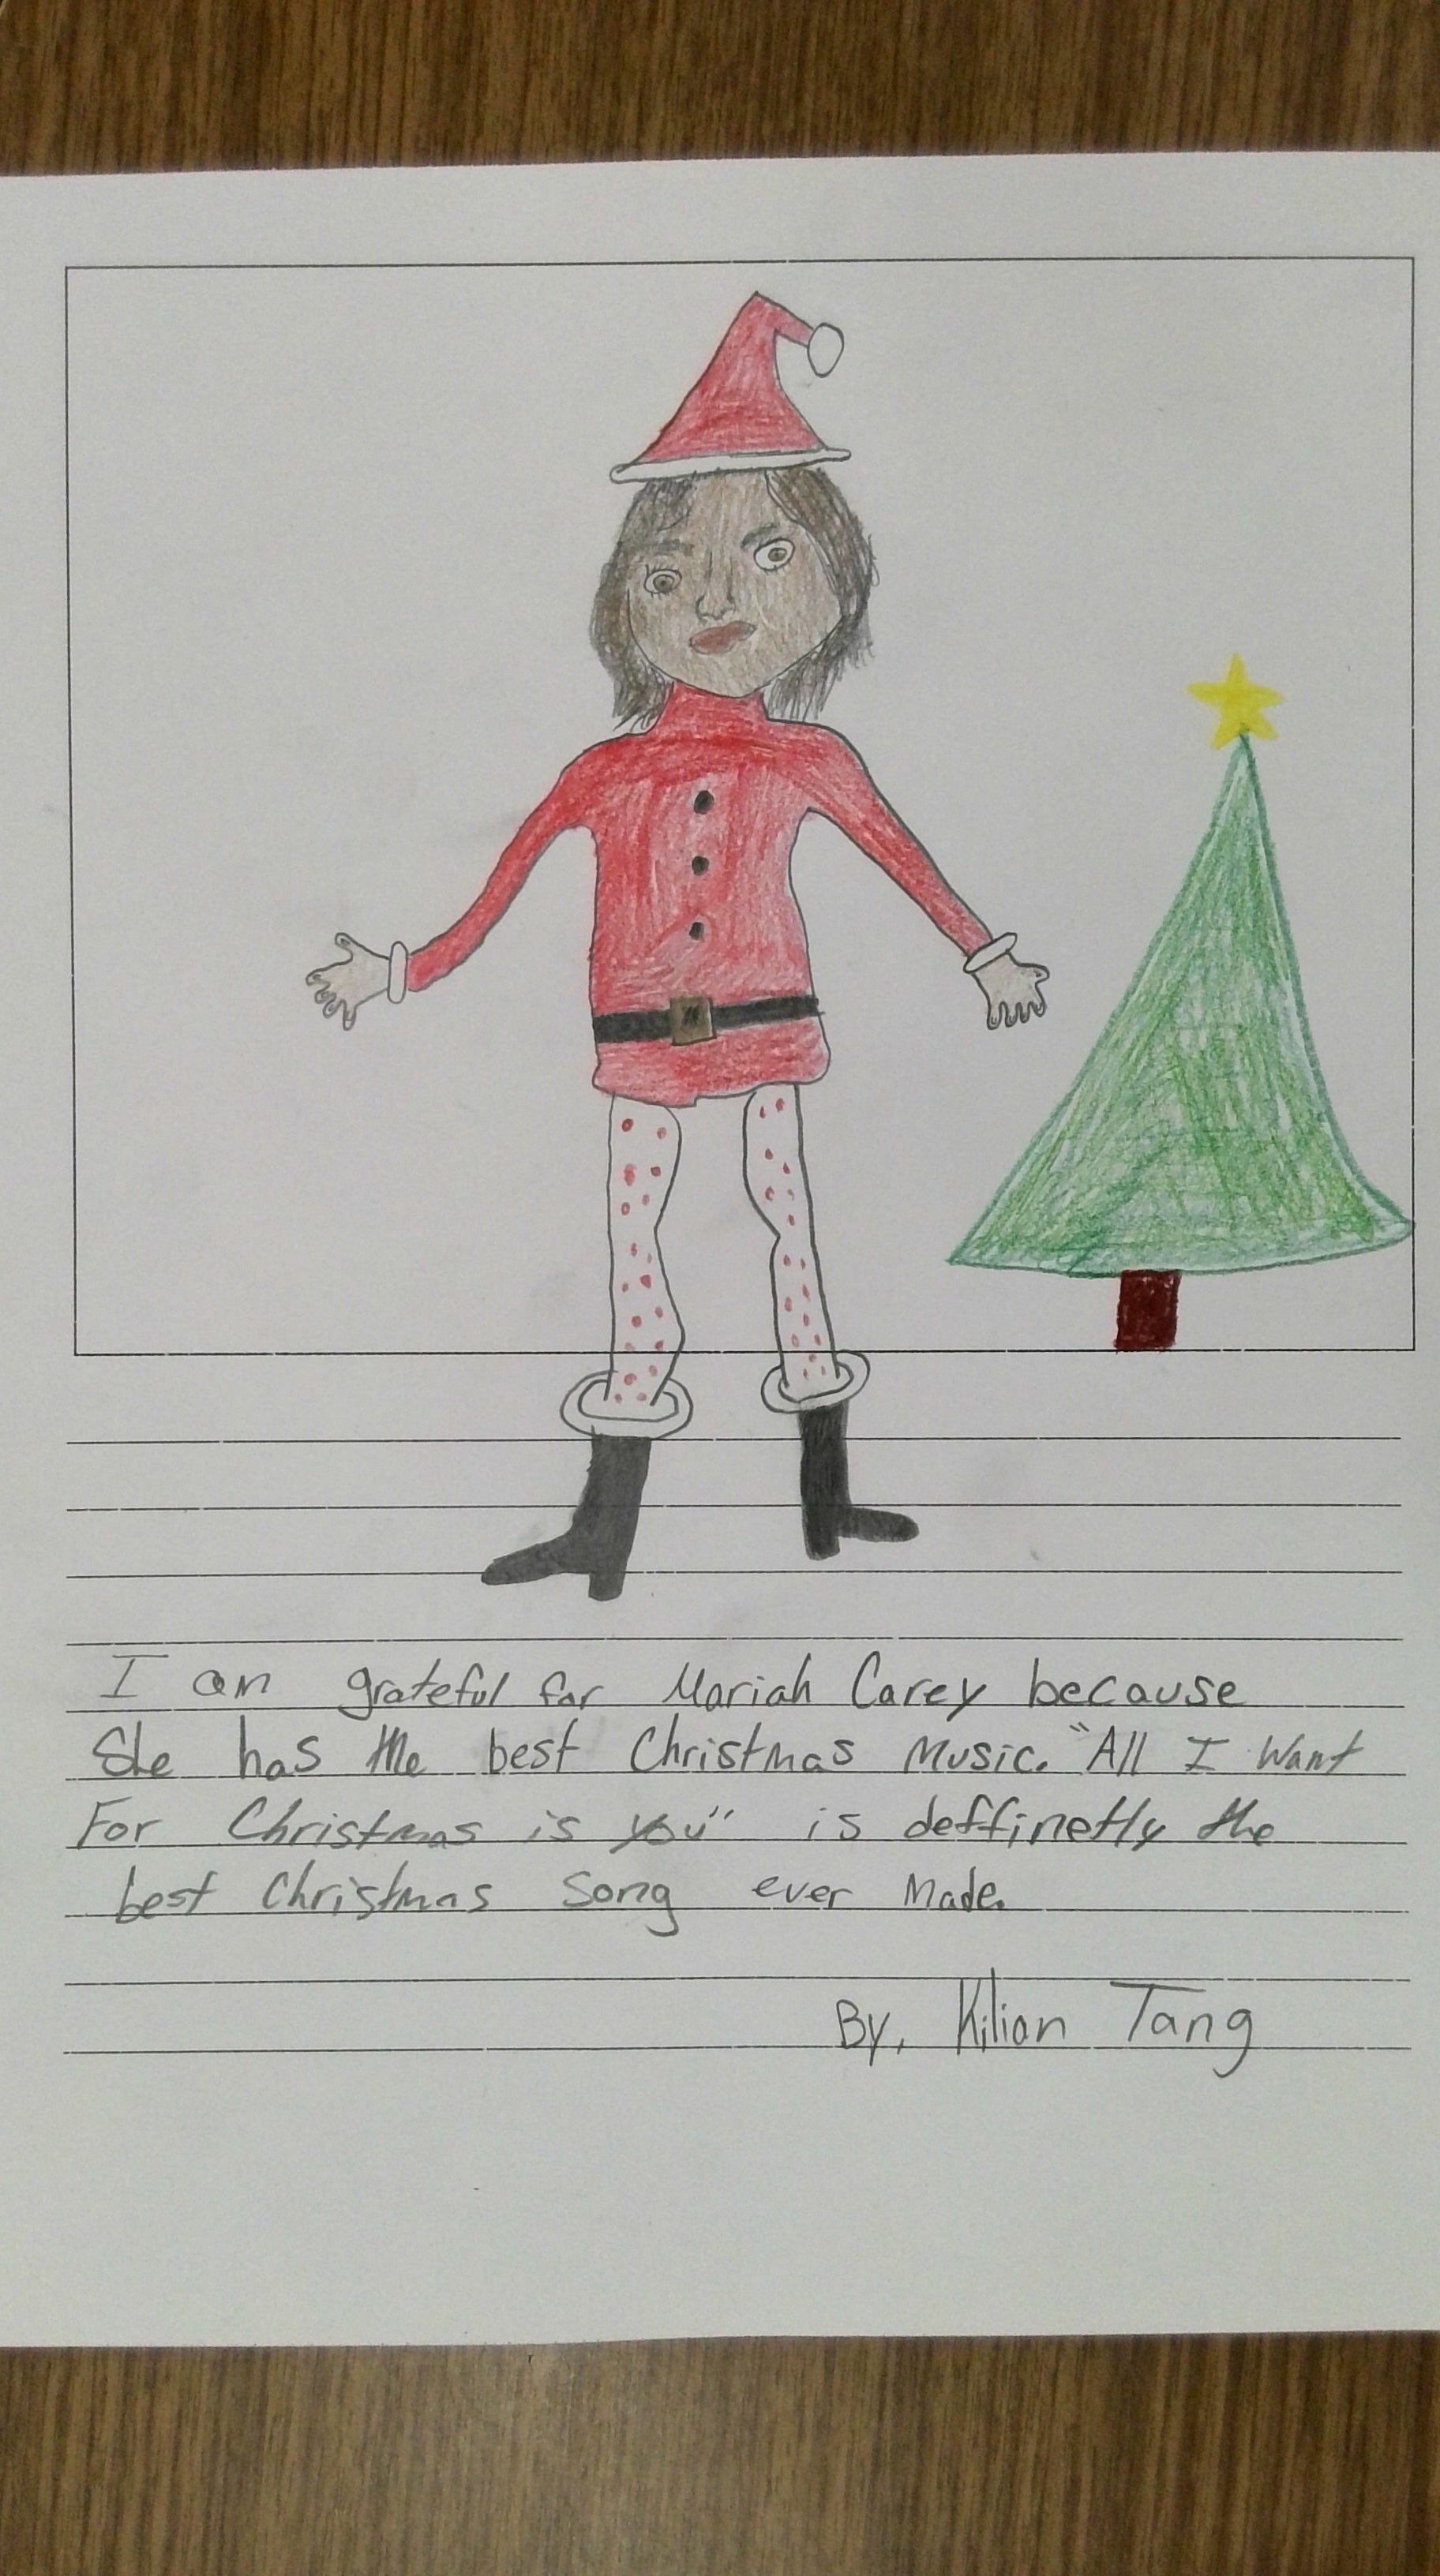 I am grateful for Mariah Carey because
She has the best Christmas Music. "All I Want
For Christmas is you" is deffinetly the
best Christmas Song ever Made.
By, Kilian Tang